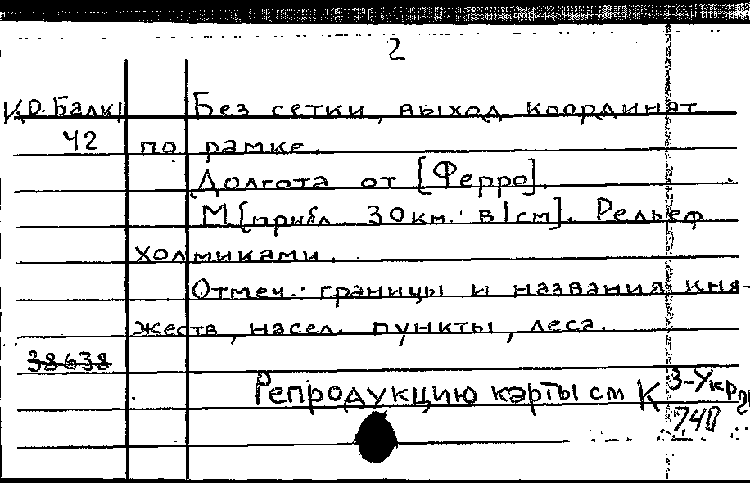 2
К.О. Балк Без сетки, выход координат
42 по рамке.
Долгота от [Ферро].
М[прибл. 30км. в 1см]. Рельеф
холмиками.
Отмеч.: границы и названия кня-
жеств, насел. пункты, леса.
38638
Репродукцию карты см К 3-Укр
740